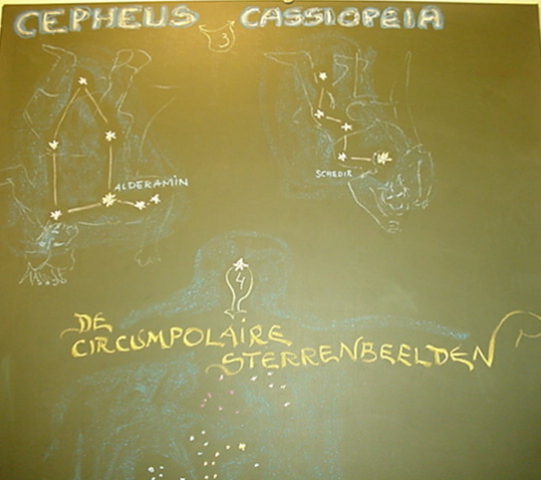 CEPHEUS CASSIOPEIA
3
ALDERAMIN
SCHEDIR
4
DE
CIRCUMPOLAIRE
STERRENBEELDEN